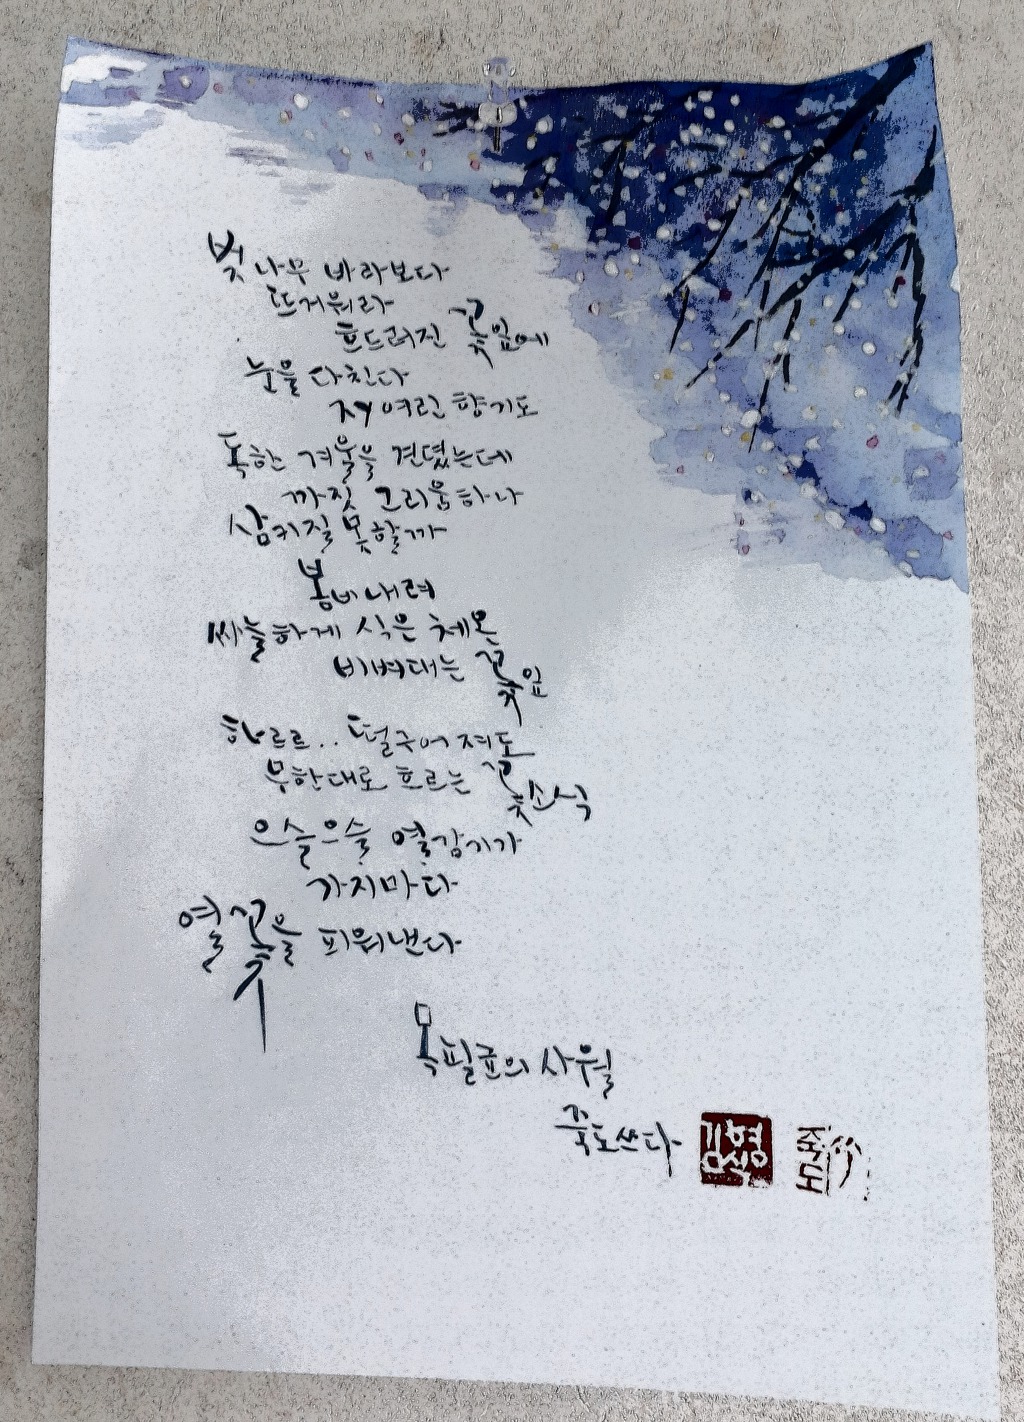 벚나무 바라보다
뜨거워라
흐드러진 꽃잎에
눈을 다친다
저 여린 향기도
독한 겨울을 견뎠는데
까짓 그리움 하나
삼키질 못할까
봄비 내려
싸늘하게 식은 체온
비벼대는 꽃잎
하르르.. 떨구어져도
무한대로 흐르는 꽃소식
으슬으슬 열감기가
가지마다
열꽃을 피워낸다
목필균의 사월
죽도 쓰다
죽도